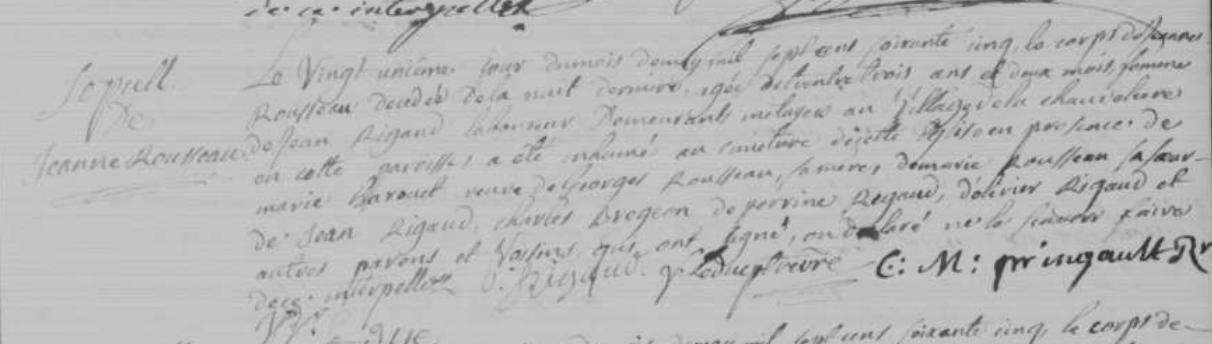 de ce interpellez
Sepult.
De
Jeanne Rousseau
Le Vingt unième jour du mois de may mil sept cent soixante cinq, le corps de Jeanne
Rousseau decedée de la nuit derniere, agée de trente trois ans et deux mois, femme
de Jean Rigaud laboureur Demeurants metayer au Village de la
en cette paroisse, a eté inhumé au cimetiere de cette Eglise en presence de
marie Barouet veuve de Georges Rousseau, sa mere, de marie Rousseau sa sœur
de Jean Rigaud, charles Brogeon de perrine Rigaud, d'olivier Rigaud et
autres parens et Voisins, qui ont signé, ou declaré ne le sçavoir faire
de ce interpellez Rigaud. C: M: pringault Rr
mil sept cent soixante cinq, le corps de